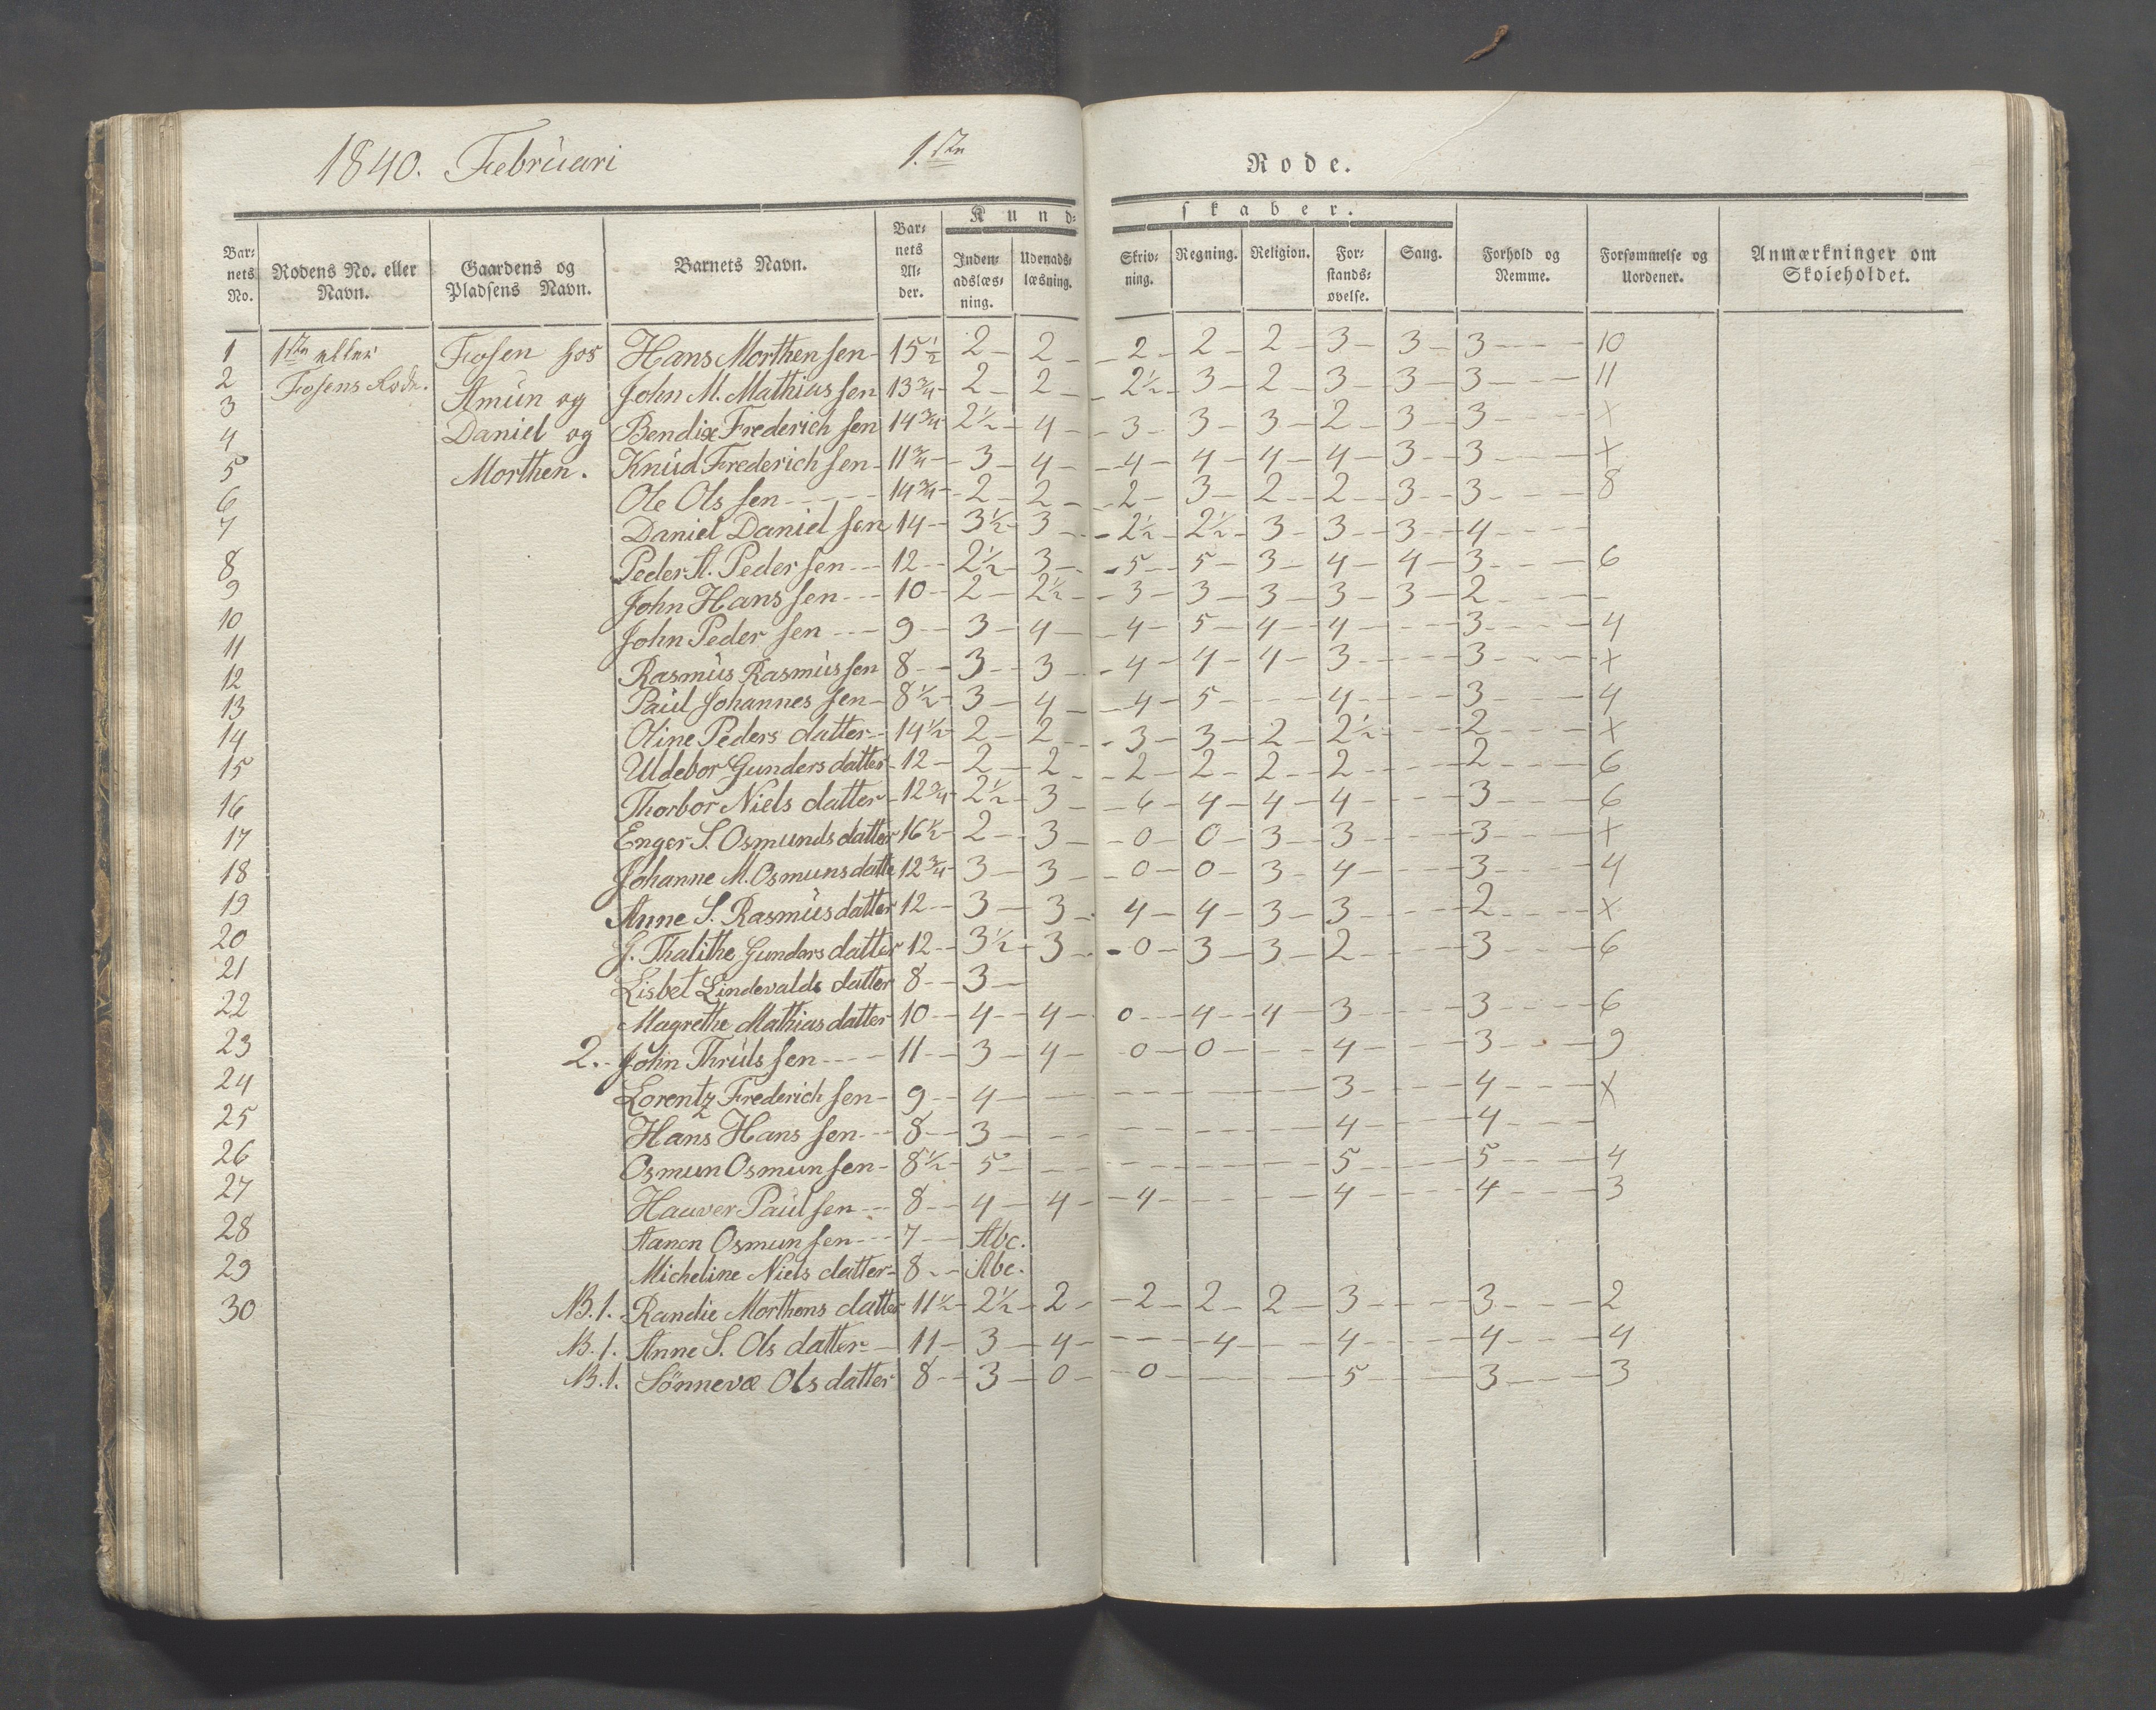 1840. Februari 1.ste Rode.
Kundskaber.
Barnets No. Rodens No. eller Navn. Gaardens og Pladsens Navn. Barnets Navn. Barnets Alder. Indenadslæsning. Udenadslæsning. Skrivning. Regning. Religion. Forstandsøvelse. Sang. Forhold og Nemme. Forsømmelse og Uordener. Anmærkninger om Skoleholdet.
1 1ste eller Fosen hos Hans Morthensen 15½ 2 2 2 2 2 3 3 3 10
2 Fosens Rode. Amün og John M. Mathiassen 13¾ 2 2 2½ 3 2 3 3 3 11
3 Daniel og Bendix Frederichsen 14¾ 2½ 4 3 3 3 2 3 3 x
4 Morthen. Knüd Frederichsen 11¾ 3 4 4 4 4 4 3 3 x
5 Ole Olssen 14¾ 2 2 2 3 2 2 3 3 8
6 Daniel Danielsen 14 3½ 3 2½ 2½ 3 3 3 4
7 Peder A. Pedersen 12 2½ 3 5 5 3 4 4 3 6
8 John Hanssen 10 2 2½ 3 3 3 3 3 2
9 John Pedersen 9 3 4 4 5 4 4 3 4
10 Rasmüs Rasmüssen 8 3 3 4 4 4 3 3 x
11 Paül Johannessen 8½ 3 4 4 5 4 3 4
12 Oline Pedersdatter 14½ 2 2 3 3 2 2½ 2 x
13 Uldebor Gundersdatter 12 2 2 2 2 2 2 2 6
14 Thorbor Nielsdatter 12¾ 2½ 3 6 4 4 4 3 6
15 Enger S. Osmundsdatter 16½ 2 3 0 0 3 3 3 x
16 Johanne M. Osmunsdatte 12¾ 3 3 0 0 3 4 3 4
17 Anne S. Rasmüsdatter 12 3 3 4 4 3 3 2 x
18 G. Thalithe Gundersdatter 12 3½ 3 0 3 3 2 3 6
19 Lisbet Lindevaldsdatter 8 3
20 Magrethe Mathiasdatter 10 4 4 0 4 4 3 3 6
21 2. John Thrülssen 11 3 4 0 0 4 3 9
22 Lorentz Frederichsen 9 4 3 4 x
23 Hans Hanssen 8 3 4 4
24 Osmun Osmunsen 8½ 5 5 5 4
25 Hauver Paülsen 8 4 4 4 4 4 3
26 Osmunsen 7 Abc.
27 Micheline Nielsdatter 8 Abc.
28 NB.1. Randie Morthensdatter 11½ 2½ 2 2 2 2 3 3 2
29 NB.1. Anne S. Olsdatter 11 3 4 4 4 4 4
30 NB.1. Sönneva Olsdatter 8 3 0 0 5 3 3